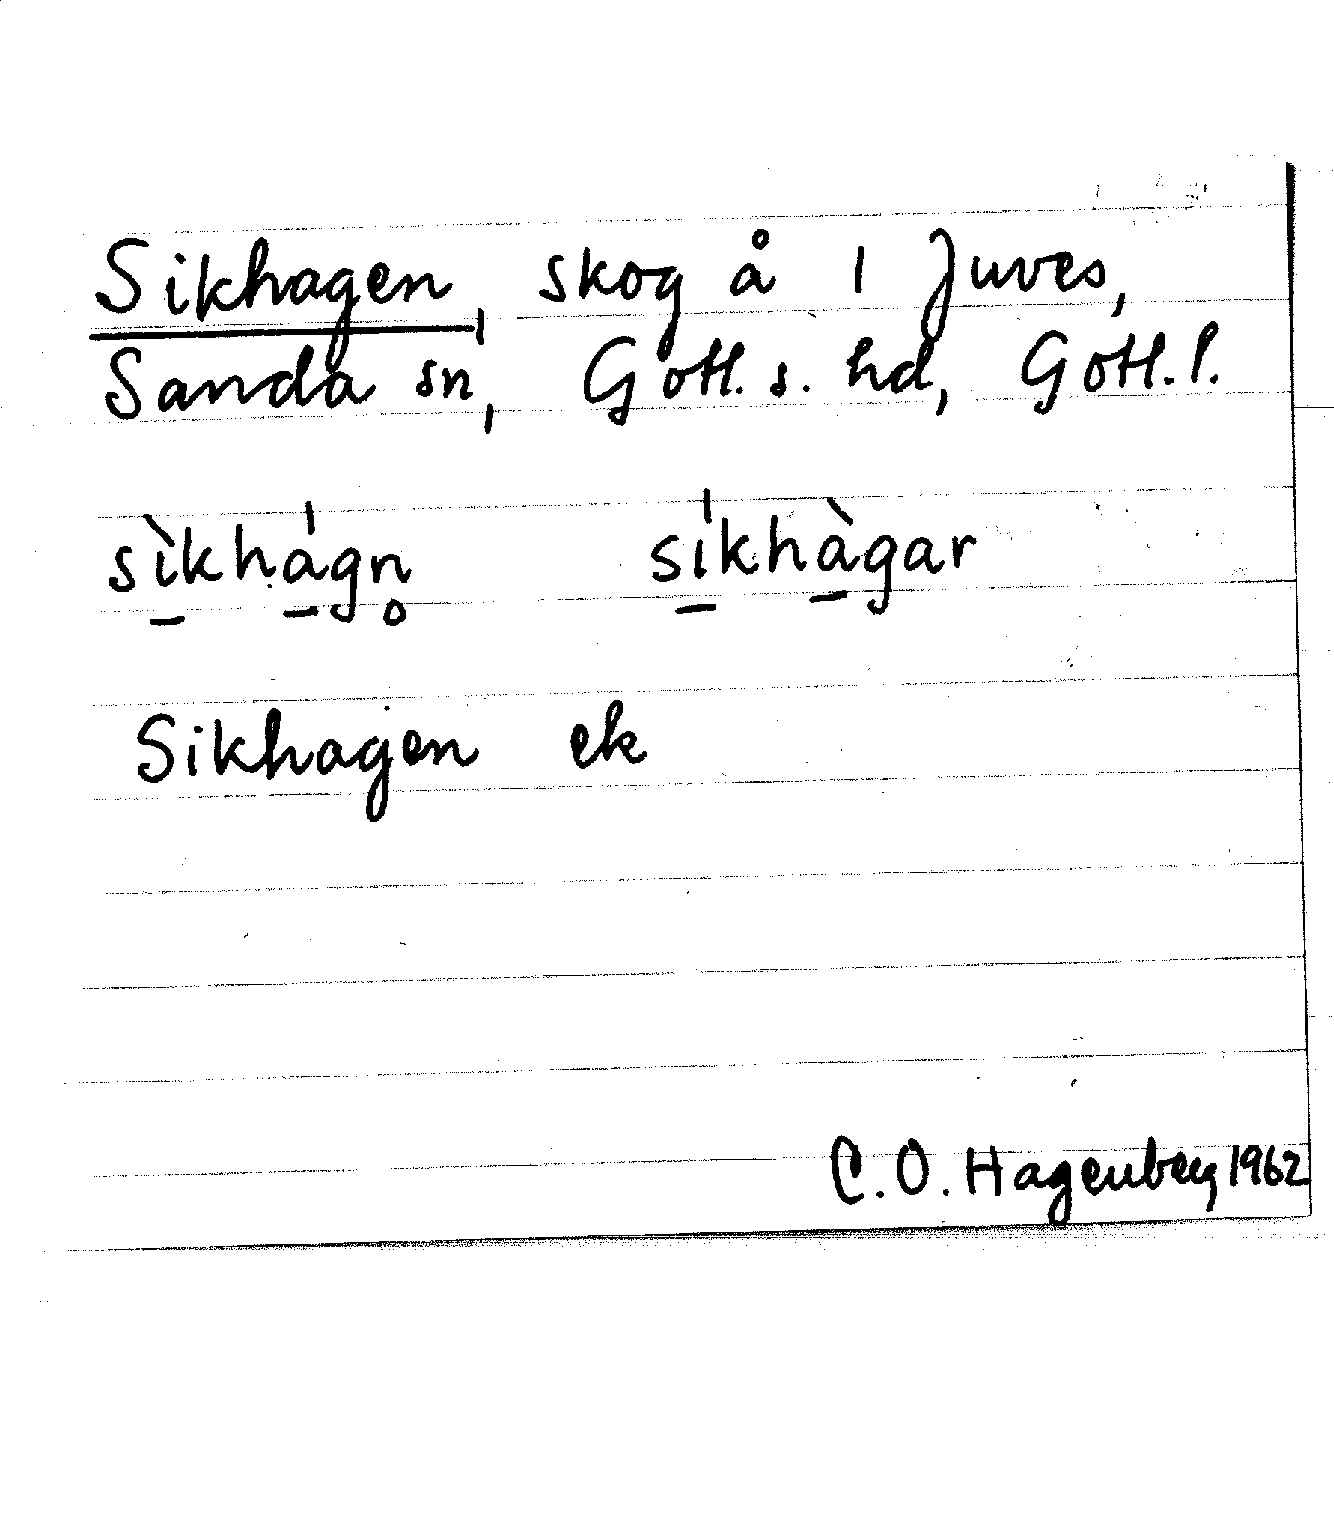 Sikhagen, skog å 1 Juves,
Sanda sn, Gotl. s. hd, Gotl. l.
sı̱̀khá̱gn̥ sı̱́khà̱gar
Sikhagen ek
C. O. Hagenbey 1962